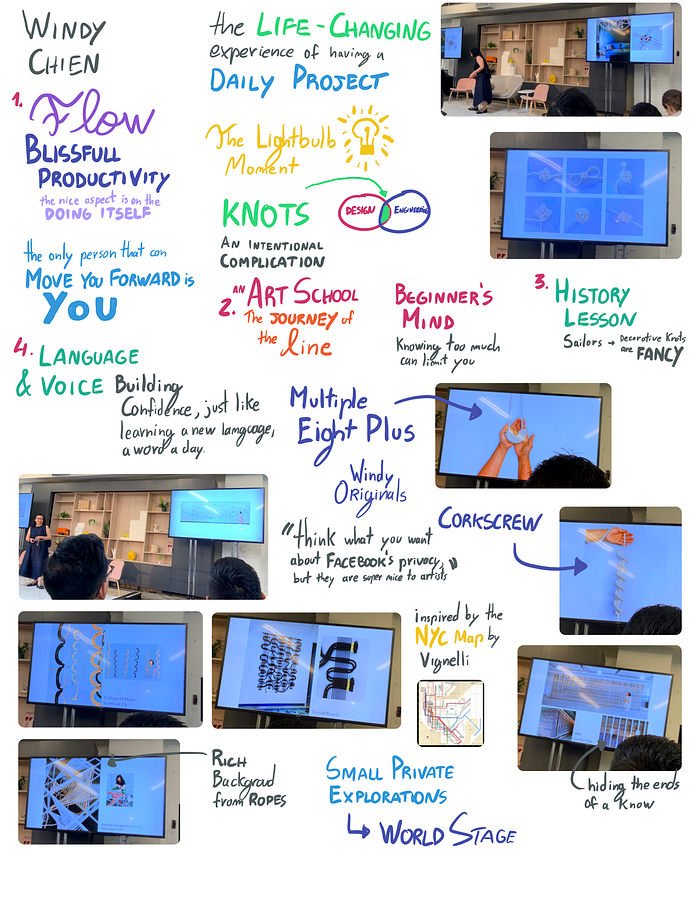 WINDY
CHIEN
the LIFE-CHANGING
experience of having a
DAILY PROJECT
1. Flow
BLISSFULL
PRODUCTIVITY
the nice aspect is on the
DOING ITSELF
The Lightbulb
Moment
KNOTS
DESIGN
ENGINEERING
AN INTENTIONAL
COMPLICATION
the only person that can
MOVE YOU FORWARD is
YOU
2. AN ART SCHOOL
The JOURNEY of
the line
BEGINNER'S
MIND
Knowing too much
can limit you
3. HISTORY
LESSON
Sailors → Decorative Knots
are FANCY
4. LANGUAGE
& VOICE Building
Confidence, just like
learning a new language,
a word a day.
Multiple
Eight Plus
Windy
Originals
CORKSCREW
"think what you want
about FACEBOOK'S privacy,"
but they are super nice to artists
inspired by the
NYC Map by
Vignelli
RICH
Backgroud
from ROPES
SMALL PRIVATE
EXPLORATIONS
↳ WORLD STAGE
hiding the ends
of a Know